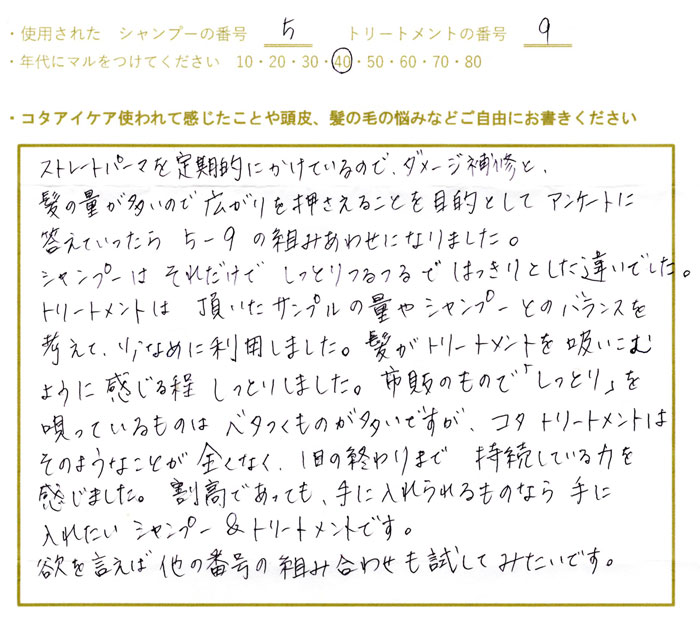 ・使用された シャンプーの番号 5 トリートメントの番号 9
・年代にマルをつけてください 10・20・30・40・50・60・70・80
・コタアイケア使われて感じたことや頭皮、髪の毛の悩みなどご自由にお書きください
ストレートパーマを定期的にかけているので、ダメージ補修と、
髪の量が多いので広がりを押さえることを目的としてアンケートに
答えていったら 5-9 の組みあわせになりました。
シャンプーは それだけで しっとりつるつる で はっきりとした違いでした。
トリートメントは 頂いたサンプルの量やシャンプーとのバランスを
考えて、少なめに利用しました。髪がトリートメントを吸いこむ
ように感じる程 しっとりしました。市販のもので「しっとり」を
唄っているものは ベタつくものが多いですが、コタ トリートメントは
そのようなことが 全くなく、1日の終わりまで 持続している力を
感じました。割高であっても、手に入れられるものなら 手に
入れたい シャンプー&トリートメントです。
欲を言えば他の番号の組み合わせも試してみたいです。